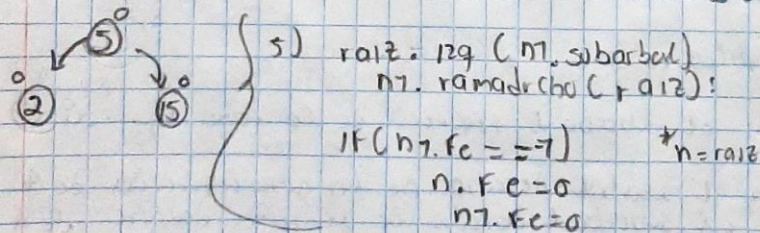 0
5
0
2
0
15
5) raiz. izq (n1. subarbol)
n1. ramadrcho (raiz);
If (n1. Fe = = -1) *n = raiz
n. Fe = 0
n1. Fe = 0